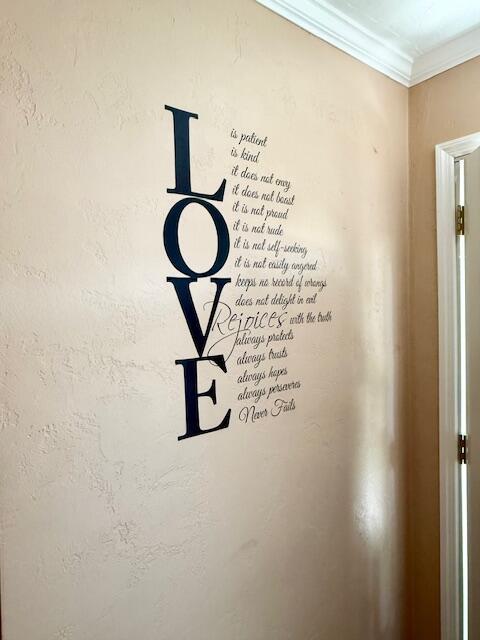 LOVE
is patient
is kind
it does not envy
it does not boast
it is not proud
it is not rude
it is not self-seeking
it is not easily angered
keeps no record of wrongs
does not delight in evil
Rejoices with the truth
always protects
always trusts
always hopes
always perseveres
Never Fails